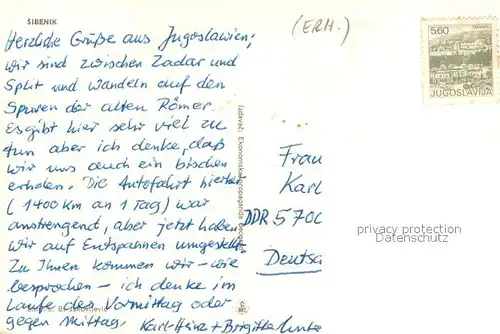 ŠIBENIK
(ERH.)
Herzliche Grüße aus Jugoslawien;
wir sind zwischen Zadar und
Split und wandeln auf den
Spuren der alten Römer.
Es gibt hier sehr viel zu
tun aber ich denke, daß
wir uns auch ein bischen
erholen. Die Autofahrt hierher
(1400 km an 1 Tag) war
anstrengend, aber jetzt haben
wir auf Entspannen umgestellt
Zu Ihnen kommen wir - wie
besprochen - ich denke im
Laufe des Vormittag oder
gegen Mittag. Karl-Heinz + Brigitte
Izdavač: Ekonomska propaganda Beograd
5,60
JUGOSLAVIJA
Frau
Karl
DDR 5700
Deutsc
privacy protection
Datenschutz